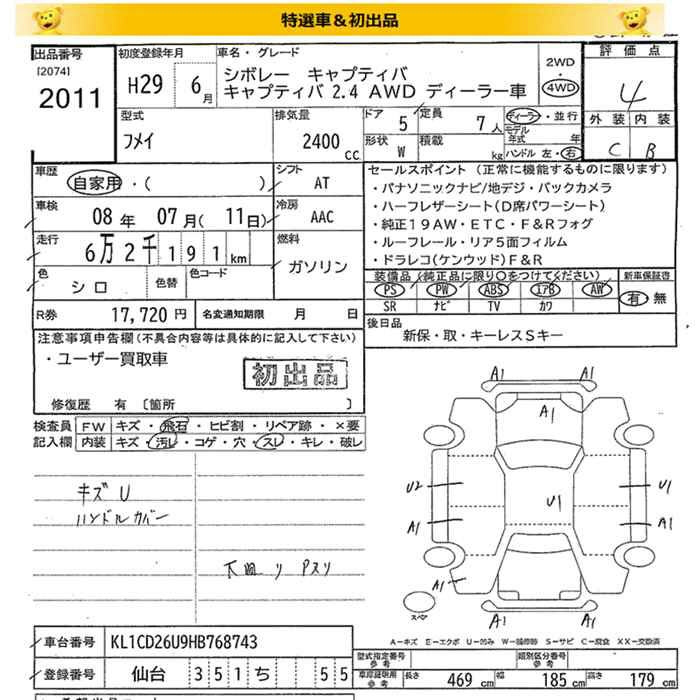 特選車＆初出品
出品番号
[2074]
2011
初度登録年月
H29 6月
車名・グレード
シボレー キャプティバ
キャプティバ 2.4 AWD ディーラー車
2WD
4WD
評価点
4
外装 内装
C B
型式
フメイ
排気量
2400 cc
ドア 5
定員 7人
形状 W
積載 kg
ディーラー・並行
モデル年式 年
ハンドル 左・右
車歴
自家用・( )
シフト
AT
車検
08年 07月(11日)
冷房
AAC
走行
6万2千191km
燃料
ガソリン
色
シロ
色替
色コード
R券 17,720円
名変通知期限 月 日
セールスポイント (正常に機能するものに限ります)
・パナソニックナビ/地デジ・バックカメラ
・ハーフレザーシート(D席パワーシート)
・純正19AW・ETC・F&Rフォグ
・ルーフレール・リア5面フィルム
・ドラレコ(ケンウッド)F&R
装備品 (純正品に限り○をつけてください)
新車保証書
PS PW ABS エアB AW
有 無
SR ナビ TV カワ
後日品
新保・取・キーレスSキー
注意事項申告欄(不具合内容等は具体的に記入して下さい)
・ユーザー買取車
初出品
修復歴 有 [箇所 ]
検査員記入欄
FW キズ・飛石・ヒビ割・リペア跡・×要
内装 キズ・汚レ・コゲ・穴・スレ・キレ・破レ
キズ U
ハンドルカバー
下廻り Pスリ
A1 A1
A1
U2 U1 U1
A1 A1
A1
スペア
A1 A1
A－キズ E－エクボ U－凹み W－補修跡 S－サビ C－腐食 XX－交換済
車台番号 KL1CD26U9HB768743
登録番号 仙台 351 ち 55
型式指定番号 参考
類別区分番号 参考
車庫証明用 参考
長さ 469cm 幅 185cm 高さ 179cm